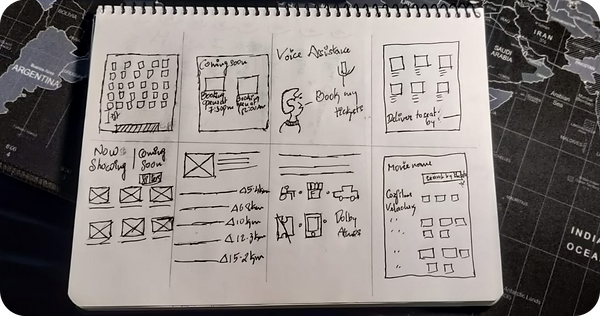 Coming soon
Booking
opens at
7:30pm
Booking
open at
Voice Assistance
Book my
tickets
Deliver to seat :
by :
Now
Showing
Coming
Soon
Δ5.4km
Δ6.8km
Δ10km
Δ12.3km
Δ15.2km
Dolby
Atmos
Movie name
Search by
ARGENTINA
IRAN
SAUDI
ARABIA
INDIAN
OCEAN